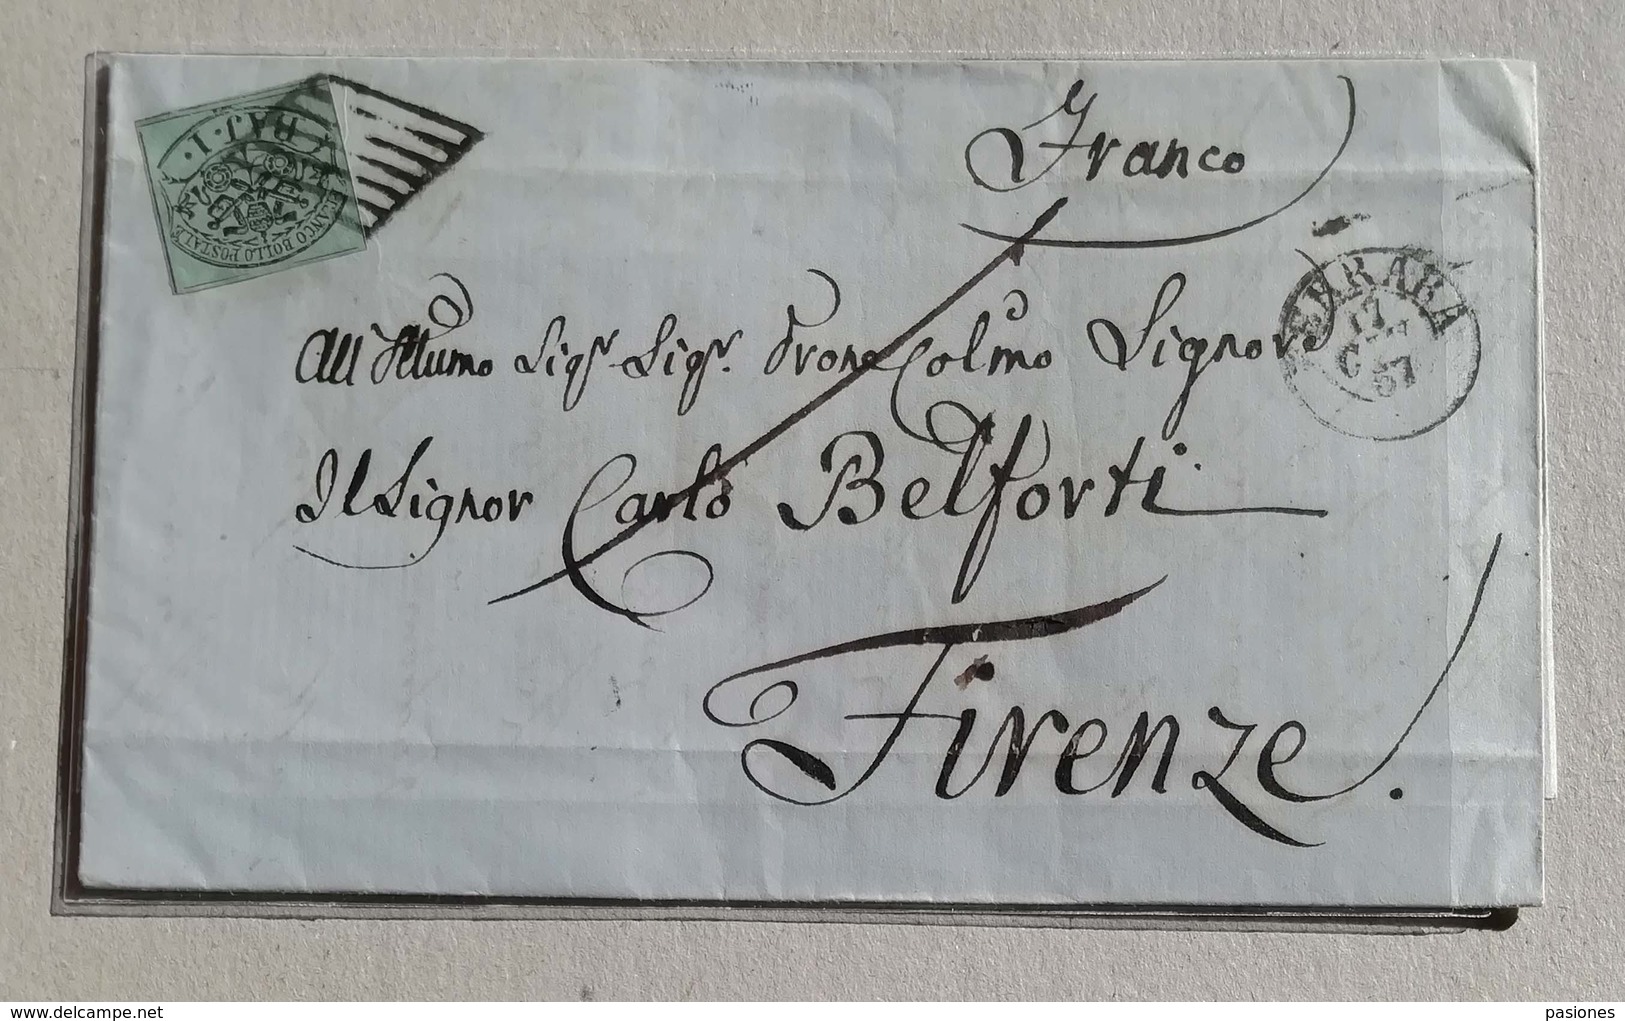 BAJ. 1.
FRANCO BOLLO POSTALE
Franco
FERRARA
17
57
All' Sigr. Sigr. Prone Colmo Signore
Il Signor Carlo Belforti
Firenze.
www.delcampe.net
pasiones